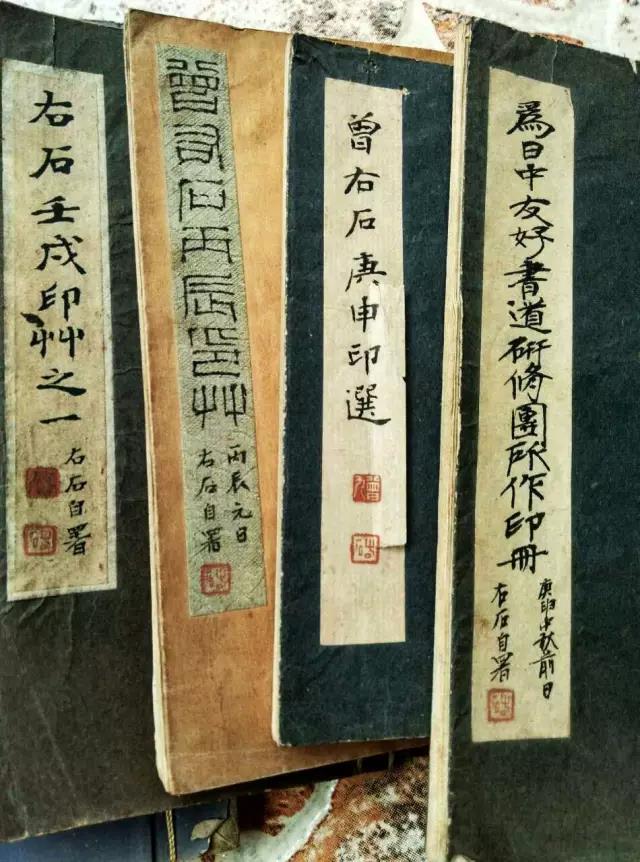 右石壬戌印艸之一
右石自署
曾右石丙辰印艸
丙辰元日
右石自署
曾右石庚申印選
爲日中友好書道研修團所作印冊
庚申中秋前日
右石自署